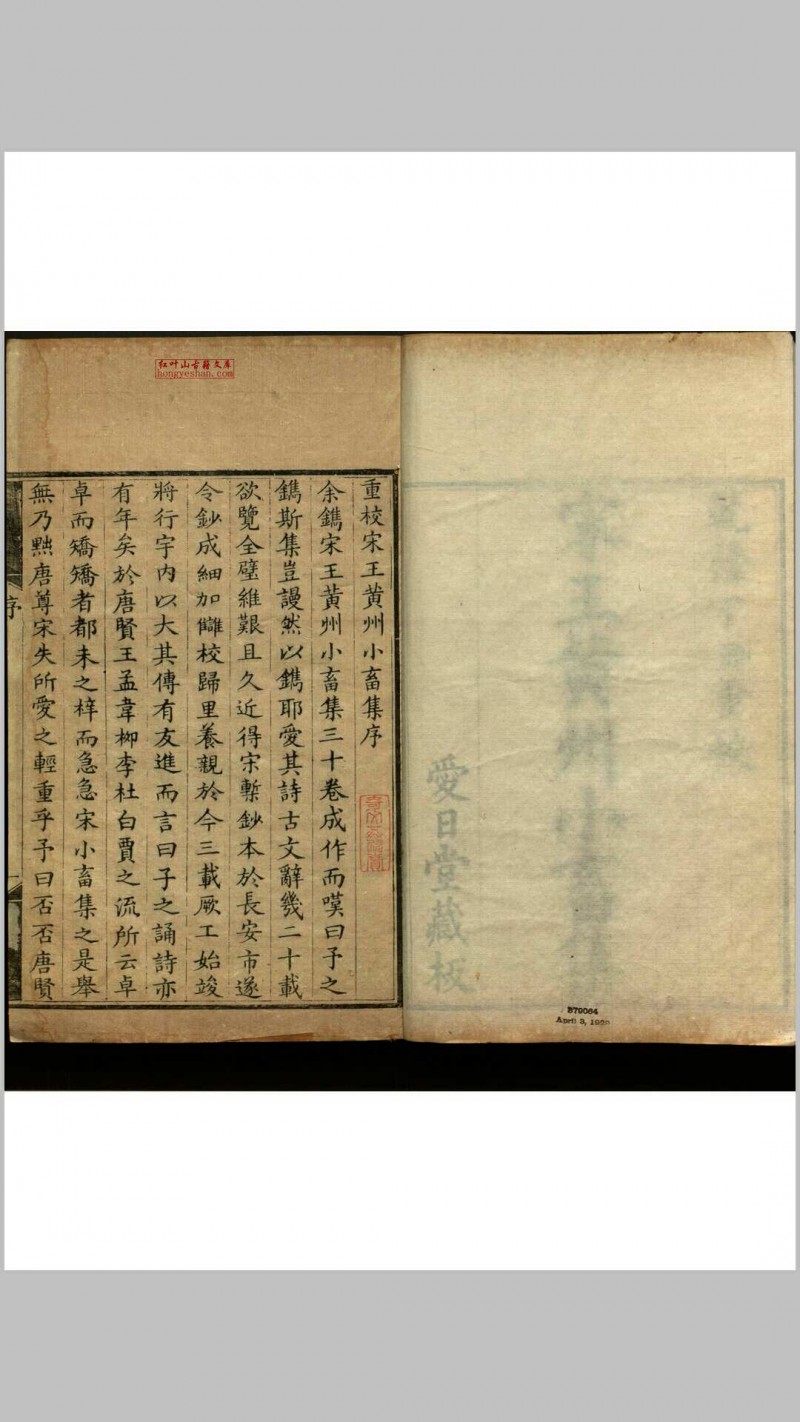 红叶山古籍文库
hongyeshan.com
愛日堂藏板
879064
April 3, 19
重校宋王黄州小畜集序
余鐫宋王黄州小畜集三十卷成作而嘆曰予之
鐫斯集豈謾然以鐫耶愛其詩古文辭幾二十載
欲覽全璧維艱且久近得宋槧鈔本於長安市遂
令鈔成細加讎校歸里養親於今三載厥工始竣
將行宇内以大其傳有友進而言曰子之誦詩亦
有年矣於唐賢王孟韋柳李杜白賈之流所云卓
卓而矯矯者都未之梓而急急宋小畜集之是舉
無乃黜唐尊宋失所愛之輕重乎予曰否否唐賢
序
一